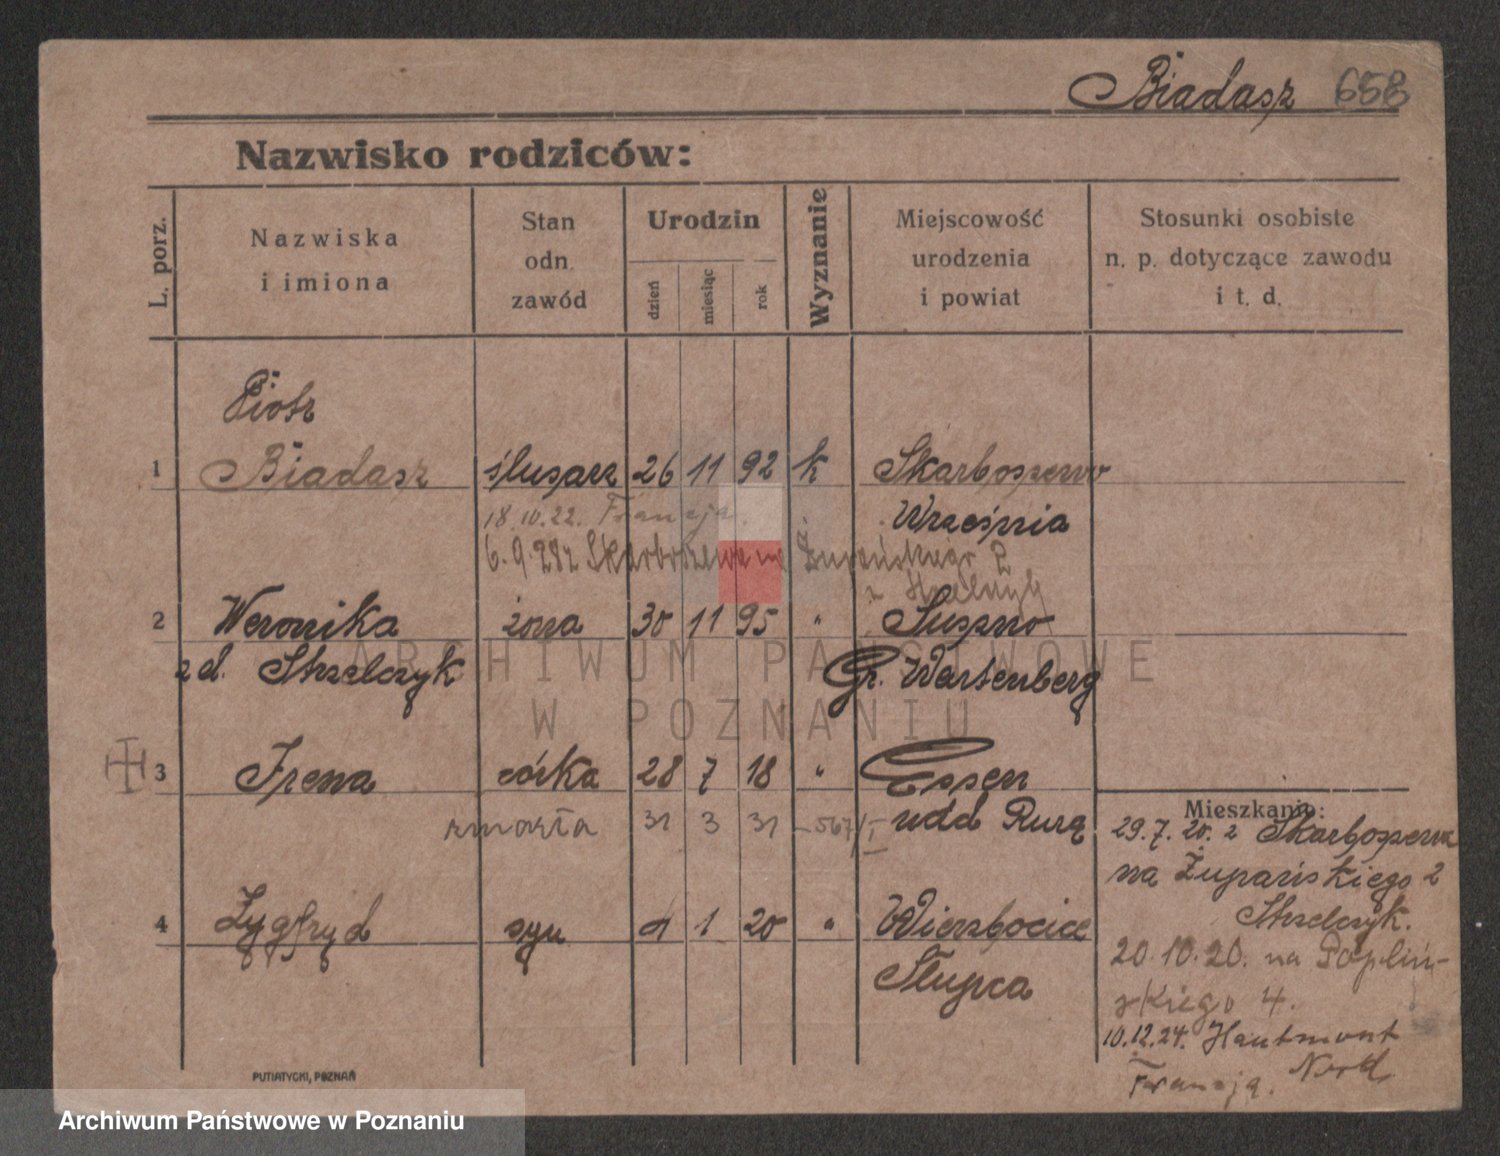 Biadasz 658
Nazwisko rodziców:
L. porz.
Nazwiska
i imiona
Stan
odn.
zawód
Urodzin
dzień
miesiąc
rok
Wyznanie
Miejscowość
urodzenia
i powiat
Stosunki osobiste
n. p. dotyczące zawodu
i t. d.
Piotr
1 Biadasz ślusarz 26 11 92 k Skarboszewo
18.10.22. Francja. Września
6.9.28 z Skarboszewa na Żupańskiego 2
z Strzelczyk
2 Weronika żona 30 11 95 " Suszno
zd. Strzelczyk Gr. Wartenberg
3 Irena córka 28 7 18 " Essen
zmarła 31 3 31 -567/I nad Rurą
4 Zygfryd syn 1 20 " Wierzbocice
Słupca
Mieszkanie:
29.7.20. z Skarboszewa
na Żupańskiego 2
Strzelczyk.
20.10.20. na Popliń-
skiego 4.
10.12.24. Hautmont
Nord
Francja.
PUTIATYCKI, POZNAŃ
ARCHIWUM PAŃSTWOWE
W POZNANIU
Archiwum Państwowe w Poznaniu